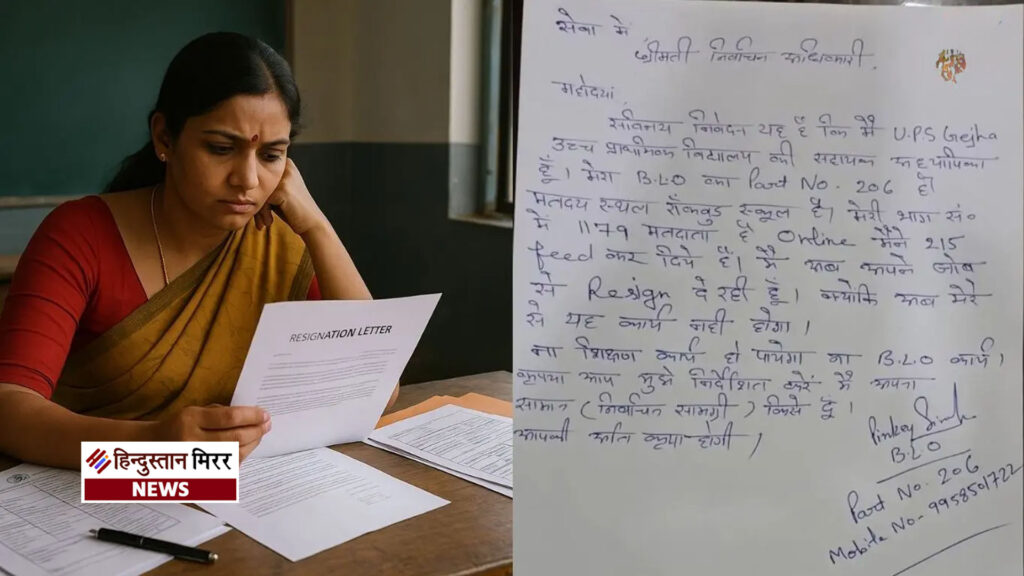 RESIGNATION LETTER
हिन्दुस्तान मिरर
NEWS
सेवा में
श्रीमती निर्वाचन अधिकारी,
महोदया,
सविनय निवेदन यह है कि मैं U.P.S Gejha
उच्च प्राथमिक विद्यालय की सहायक अध्यापिका
हूँ। मेरा B.L.O का Part No. 206 है
मतदय स्थल रॉकवुड स्कूल है। मेरी भाग सं०
में 1179 मतदाता है Online मैंने 215
feed कर दिये है। मैं अब अपने जोब
से Resign दे रही हूँ। क्योकि अब मेरे
से यह कार्य नही होगा।
ना शिक्षण कार्य हो पायेगा ना B.L.O कार्य।
कृपया आप मुझे निर्देशित करें मैं अपना
सामान (निर्वाचन सामग्री) किसे दूँ।
आपकी अति कृपा होगी।
Pinkey Singh
B.L.O
Part No. 206
Mobile No- 9958501722